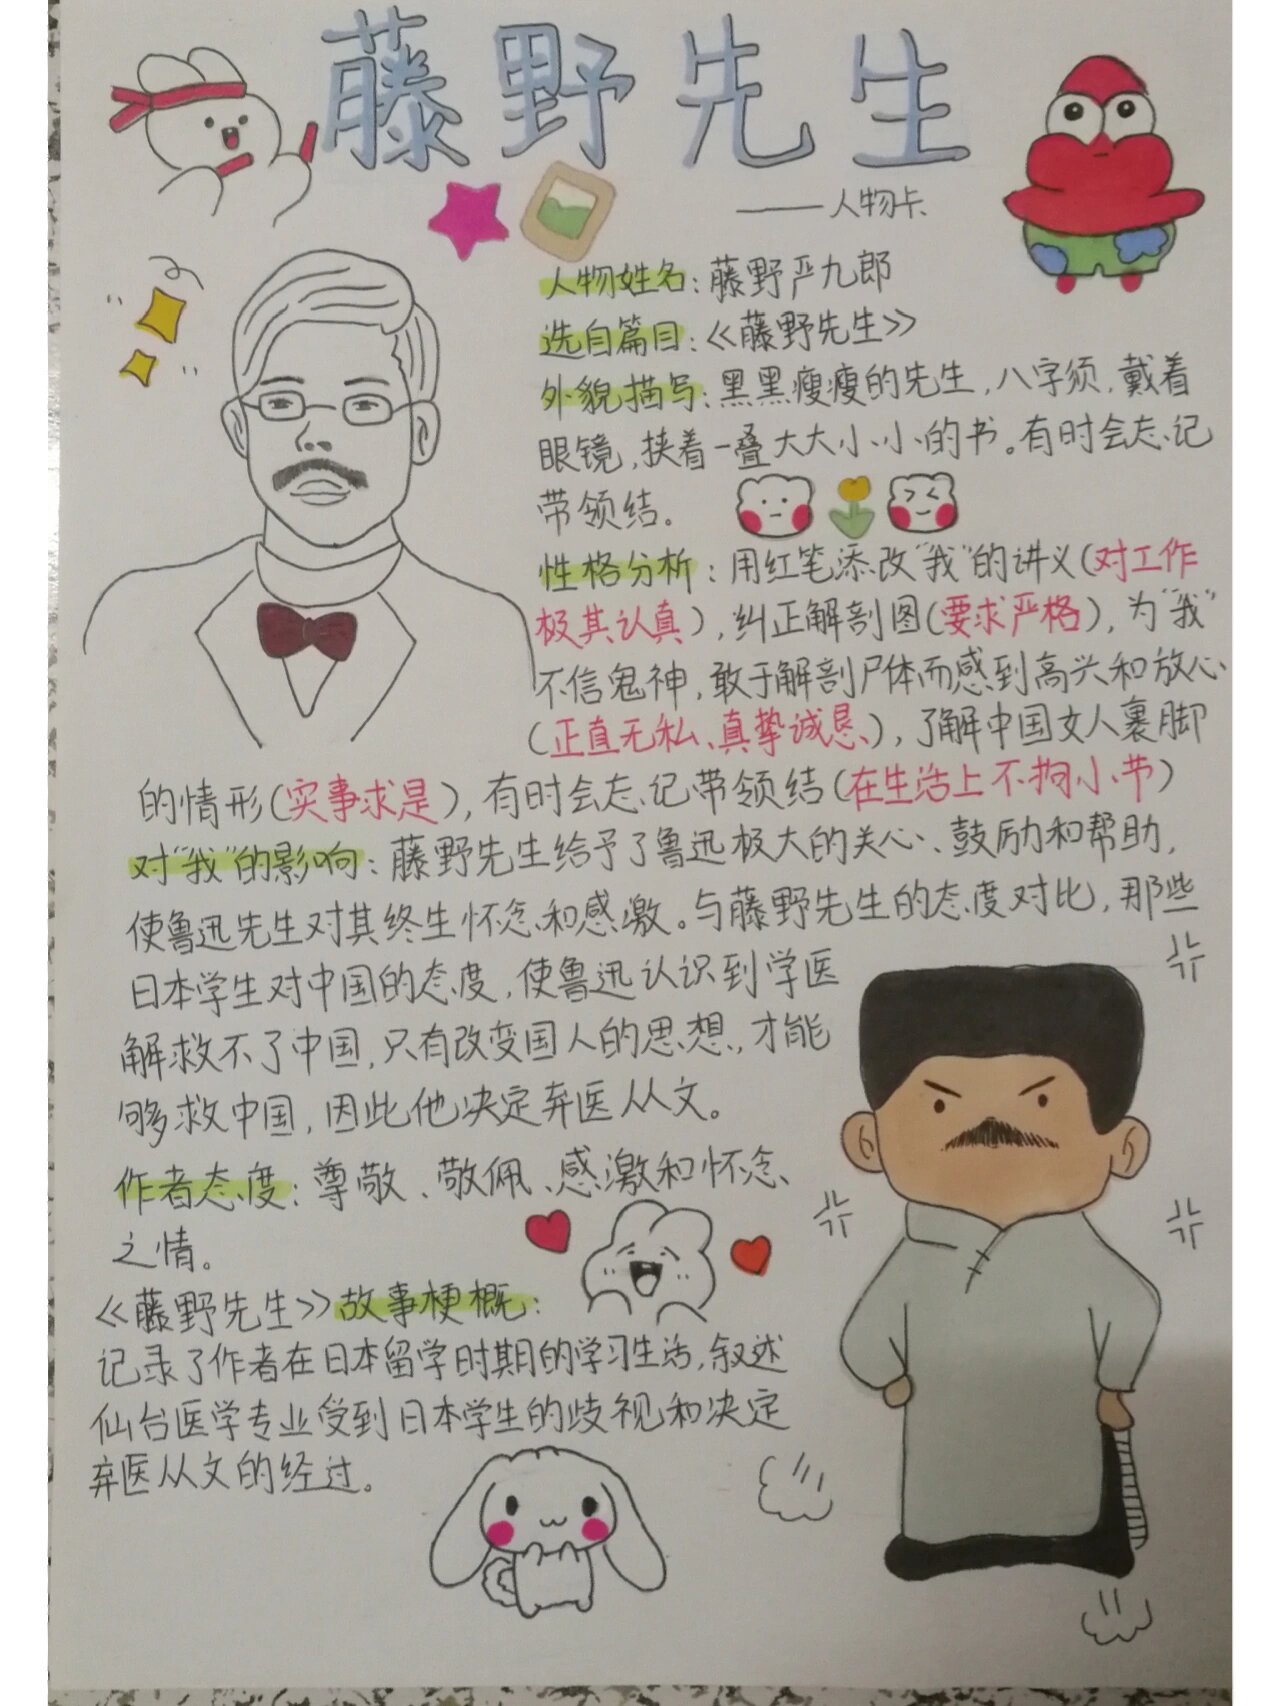 藤野先生
——人物卡
人物姓名：藤野严九郎
选自篇目：《藤野先生》
外貌描写：黑黑瘦瘦的先生，八字须，戴着
眼镜，挟着一叠大大小小的书。有时会忘记
带领结。
性格分析：用红笔添改“我”的讲义（对工作
极其认真），纠正解剖图（要求严格），为“我”
不信鬼神，敢于解剖尸体而感到高兴和放心
（正直无私、真挚诚恳），了解中国女人裹脚
的情形（实事求是），有时会忘记带领结（在生活上不拘小节）
对“我”的影响：藤野先生给予了鲁迅极大的关心、鼓励和帮助，
使鲁迅先生对其终生怀念和感激。与藤野先生的态度对比，那些
日本学生对中国的态度，使鲁迅认识到学医
解救不了中国，只有改变国人的思想，才能
够救中国，因此他决定弃医从文。
作者态度：尊敬、敬佩、感激和怀念
之情。
《藤野先生》故事梗概：
记录了作者在日本留学时期的学习生活，叙述
仙台医学专业受到日本学生的歧视和决定
弃医从文的经过。